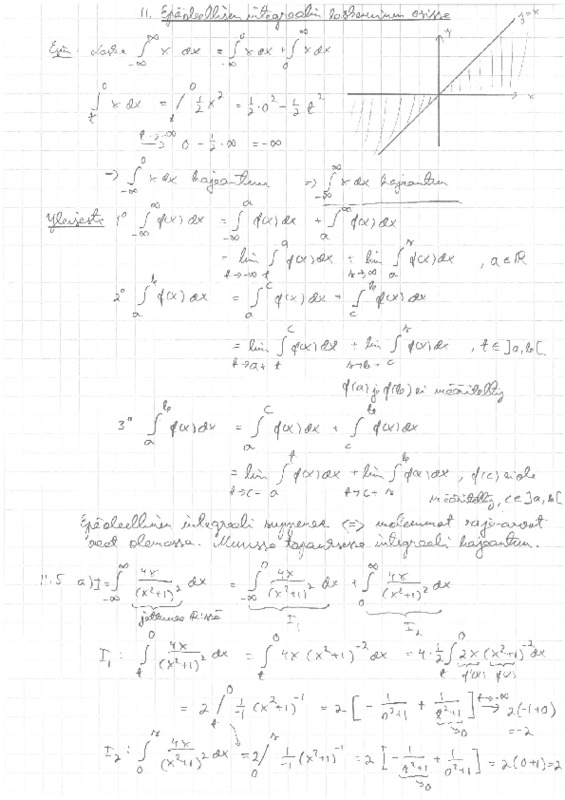 11. Epäoleellisen integraalin laskeminen osissa
y y=x
Esim. Laske ∫_{-∞}^{∞} x dx = ∫_{-∞}^{0} x dx + ∫_{0}^{∞} x dx
x
∫_{t}^{0} x dx = /_{t}^{0} ½x² = ½·0² - ½t²
t→-∞ → 0 - ½·∞ = -∞
⇒ ∫_{-∞}^{0} x dx hajaantuu ⇒ ∫_{-∞}^{∞} x dx hajaantuu
Yleisesti 1° ∫_{-∞}^{∞} f(x) dx = ∫_{-∞}^{a} f(x) dx + ∫_{a}^{∞} f(x) dx
= lim_{t→-∞} ∫_{t}^{a} f(x) dx + lim_{r→∞} ∫_{a}^{r} f(x) dx , a∈ℝ
2° ∫_{a}^{b} f(x) dx = ∫_{a}^{c} f(x) dx + ∫_{c}^{b} f(x) dx
= lim_{t→a+} ∫_{t}^{c} f(x) dx + lim_{r→b-} ∫_{c}^{r} f(x) dx , t∈]a,b[
f(a) ja f(b) ei määritelty
3° ∫_{a}^{b} f(x) dx = ∫_{a}^{c} f(x) dx + ∫_{c}^{b} f(x) dx
= lim_{t→c-} ∫_{a}^{t} f(x) dx + lim_{r→c+} ∫_{r}^{b} f(x) dx , f(c) ei ole
määritelty, c∈]a,b[
Epäoleellinen integraali suppenee ⇔ molemmat raja-arvot
ovat olemassa. Muussa tapauksessa integraali hajaantuu.
11.5 a) I = ∫_{-∞}^{∞} 4x/(x²+1)² dx = ∫_{-∞}^{0} 4x/(x²+1)² dx + ∫_{0}^{∞} 4x/(x²+1)² dx
I₁ I₂
I₁: ∫_{t}^{0} 4x/(x²+1)² dx = ∫_{t}^{0} 4x(x²+1)⁻² dx = 4·½ ∫_{t}^{0} 2x(x²+1)⁻² dx
f'(x) f(x)
= 2 /_{t}^{0} 1/-1 (x²+1)⁻¹ = 2·[-1/(0²+1) + 1/(t²+1)] t→-∞ → 2(-1+0)
→0 = -2
I₂: ∫_{0}^{r} 4x/(x²+1)² dx = 2 /_{0}^{r} 1/-1 (x²+1)⁻¹ = 2[-1/(r²+1) + 1/(0²+1)] = 2(0+1) = 2
→0